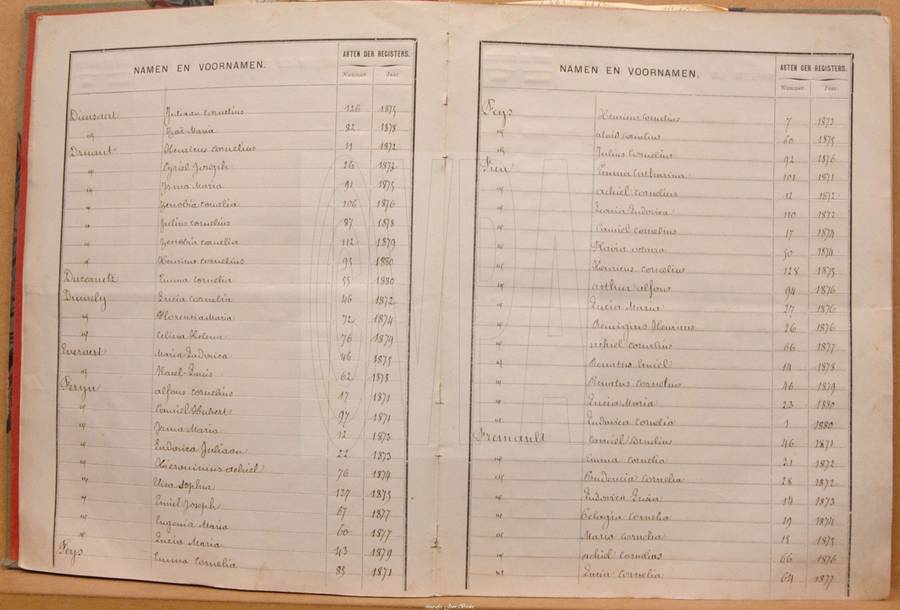 NAMEN EN VOORNAMEN. AKTEN DER REGISTERS.
Nummer. Jaar.
Juliaan Cornelius 126 1875
" Maria 82 1878
Druant Henricus Cornelius 11 1872
" Cyriel Joseph 26 1873
" Irma Maria 91 1875
" Zenobia Cornelia 106 1876
" Julius Cornelius 87 1878
" Zenobia Cornelia 112 1879
" Henricus Cornelius 95 1880
Emma Cornelia 55 1880
Lucia Cornelia 46 1872
" Florentia Maria 72 1874
" Celina Helena 76 1879
Everaert Maria Ludovica 46 1875
" Karel Louis 62 1878
Feryn Alfons Cornelius 17 1871
" Camiel Hubert 97 1871
" Irma Maria 12 1873
" Ludovica Juliaan 22 1873
" Hieronimus Achiel 76 1874
" Elisa Sophia 127 1875
" Emiel Joseph 67 1877
" Eugenia Maria 60 1877
" Lucia Maria 43 1879
Feys Emma Cornelia 85 1871
NAMEN EN VOORNAMEN. AKTEN DER REGISTERS.
Nummer. Jaar.
Feys Henricus Cornelius 7 1873
" Aloïs Cornelius 60 1875
" Julius Cornelius 92 1876
Emma Catharina 101 1871
" Achiel Cornelius 12 1872
" Leonia Ludovica 110 1872
" Camiel Cornelius 17 1874
" Flavia 50 1874
" Henricus Cornelius 128 1875
" Arthur Alfons 94 1876
" Lucia Maria 27 1876
" Remigius Henricus 26 1876
" Achiel Cornelius 66 1877
" Renatus Emiel 14 1878
" Renatus Cornelius 46 1879
" Lucia Maria 23 1880
" Ludovica Cornelia 1 1880
Fremault Camiel Cornelius 46 1871
" Emma Cornelia 21 1872
" Prudencia Cornelia 28 1872
" Ludovica Lucia 14 1873
" Pelagia Cornelia 19 1874
" Maria Cornelia 15 1875
" Achiel Cornelius 66 1876
" Lucia Cornelia 64 1877